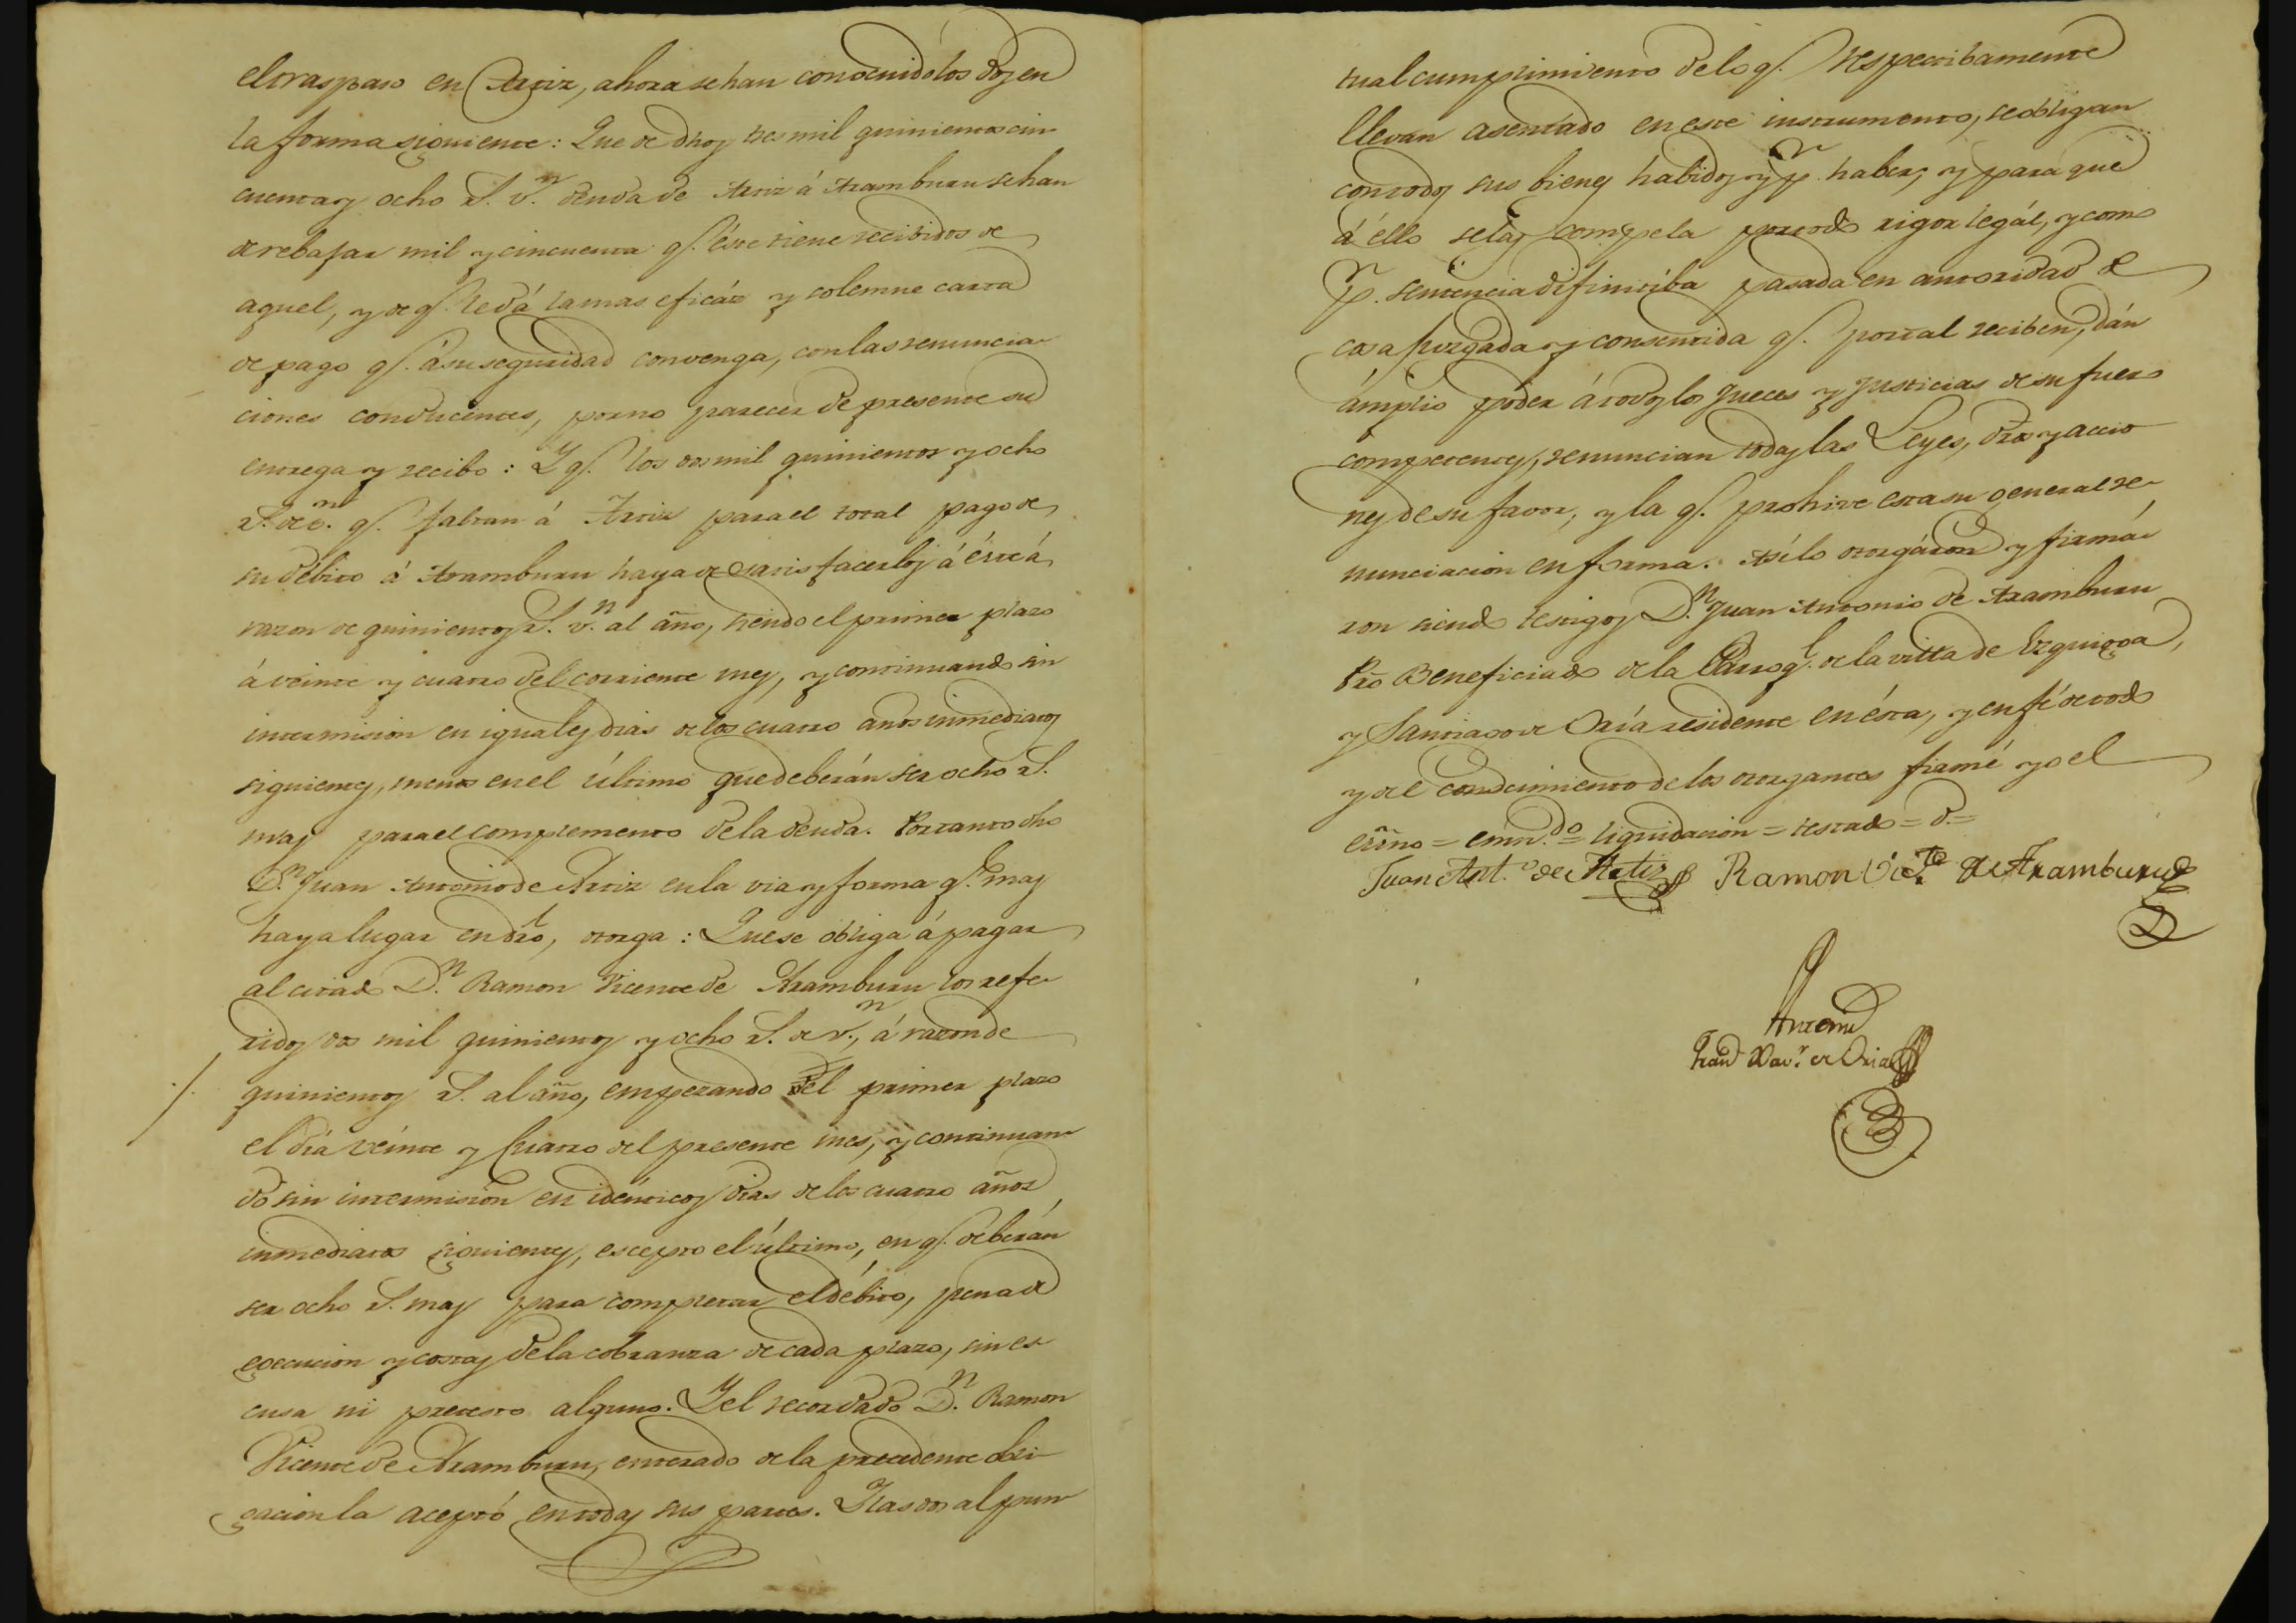 el traspaso en Artiz, ahora se han convenido los dos en
la forma siguiente: Que de dhos tres mil quinientos cin-
cuenta y ocho r.s v.n deuda de Artiz á Aramburu se han
de rebajar mil y cincuenta q.e éste tiene recibidos de
aquel, y de q.e le dá la mas eficáz y solemne carta
de pago q.e á su seguridad convenga, con las renuncia-
ciones conducentes, por no parecer de presente su
entrega y recibo: Y q.e los dos mil quinientos y ocho
r.s de v.n q.e faltan á Artiz para el total pago de
su débito á Aramburu haya de satisfacerlos á éste á
razon de quinientos r.s v.n al año, siendo el primer plazo
á veinte y cuatro del corriente mes, y continuando sin
intermision en iguales dias de los cuatro años inmediatos
siguientes, menos en el último que deberán ser ocho r.s
mas para el complemento de la deuda. Por tanto dho
D.n Juan Antonio de Artiz en la via y forma q.e mas
haya lugar en dro, otorga: Que se obliga á pagar
al citado D.n Ramon Vicente de Aramburu los refe-
ridos dos mil quinientos y ocho r.s de v.n, á razon de
quinientos r.s al año, empezando el primer plazo
el dia veinte y cuatro del presente mes, y continuan-
do sin intermision en idénticos dias de los cuatro años
inmediatos siguientes, escepto el último, en q.e deberán
ser ocho r.s mas para completar el débito, pena de
execucion y costas de la cobranza de cada plazo, sin es-
cusa ni pretesto alguno. Y el recordado D.n Ramon
Vicente de Aramburu, enterado de la precedente obli-
gacion la aceptó en todas sus partes. Y las dos al pun-
tual cumplimiento de lo q.e respectibamente
llevan asentado en este instrumento, se obligan
con todos sus bienes habidos y p.r haber, y para que
á éllo se les compela por todo rigor legál, y como
p.r sentencia difinitiba pasada en autoridad de
cosa juzgada y consentida q.e por tal reciben, dán
ámplio poder á todos los Jueces y Justicias de su fuero
competentes, renuncian todas las Leyes, dros y accio-
nes de su favor, y la q.e prohive esta su general re-
nunciacion en forma. Asi lo otorgáron y firmá-
ron siendo testigos D.n Juan Antonio de Aramburu
Pro Beneficiado de la Parroq.l de la villa de Ezquioga,
y Santiago de Oria residente en ésta, y en fé de todo
y del conocimiento de los otorgantes firmé yo el
essno = emm.do = liquidacion = testado = d. =
Juan Ant.o de Artiz Ramon Vic.te de Aramburu
Antemi
Fran.co Xav.r de Oria